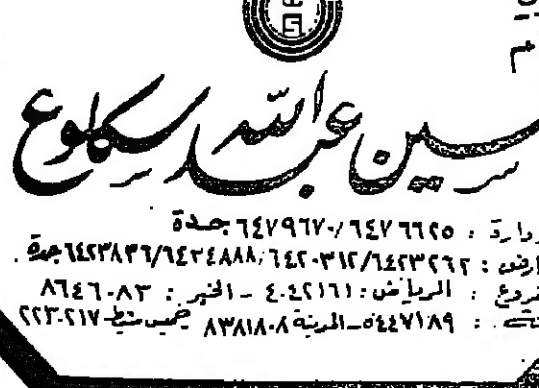 م
سين عبد الله سكلوع
دارة : ٦٤٧٦٦٢٥/٦٤٧٩٦٧٠ جدة
ارض : ٦٤٢٣٢٦٢/٦٤٢٠٣١٢/٦٤٢٤٨٨٨/٦٤٢٣٨٣٦ جدة .
فروع : الرياض : ٤٠٤٢١٦١ - الخبر : ٨٦٤٦٠٨٣
ـة : ٥٤٤٧١٨٩ - المدينة ٨٣٨١٨٠٨ خميس مشيط ٢١٧-٢٢٣